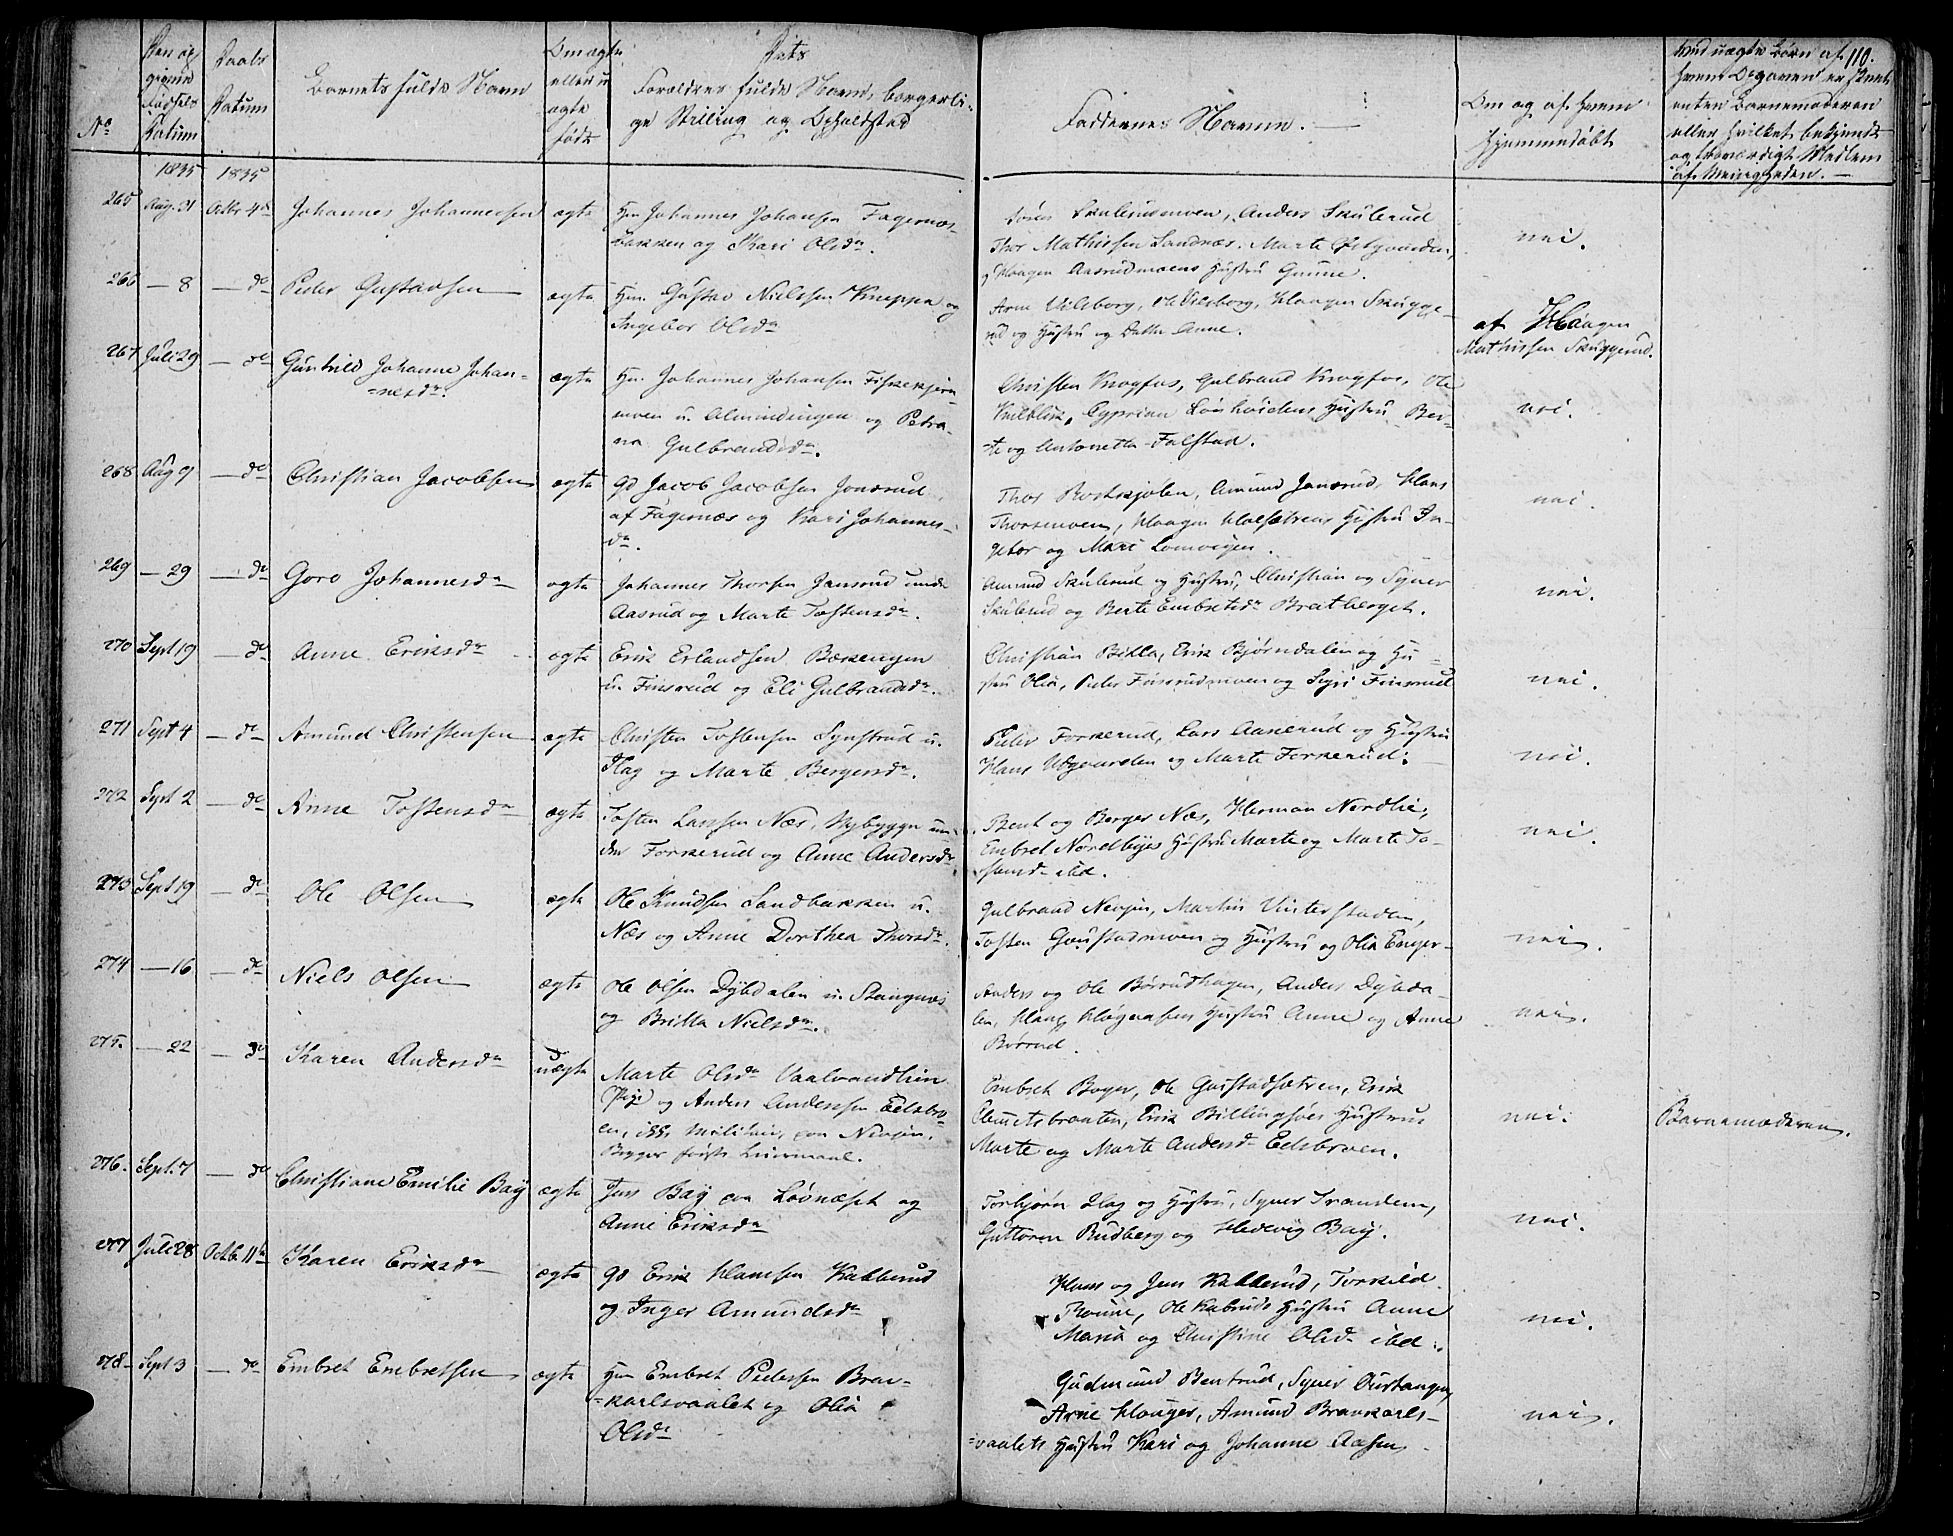 110.
No
Den op
givne
Fødsels
Datum
Daabs
Datum
Barnets fulde Navn
Om ægte
eller u
ægte
født
Dets
Forældres fulde Navne, borgerli-
ge Stilling og Opholdsted
Faddernes Navne.
Om og af hvem
hjemmedøbt
Ved uægte Børn af
hvem er
enten Barnemoderen
eller hvilket bekjendt
og troværdigt Medlem
af Menigheden.
1835 1835
265 Aug. 31 Octbr 4de Johannes Johannesen ægte
Hm Johannes Johansen Fagernæs-
bakken og Kari Olsdr.
Søren Skulerudmoen, Anders Skulerud
Thor Mathissen Sandnæs. Marte Østgaarden,
og Haagen Aasrudmoens Hustru Gunne.
nei.
266 — 8 — do Peder Gustavsen ægte
Hm. Gustav Nielsen Kneppe og
Ingebor Olsdr
Arne Vilsborg, Ole Vilsborg, Haagen Skugge-
rud og Hustru og Datter Anne.
af Haagen
Mathissen Skuggerud.
267 Juli 29 — do Gunhild Johanne Johan-
nesdr. ægte
Hm. Johannes Johansen Fiskekjern-
moen u. Almindingen og Petro-
na Gulbrandsdr.
Christen Krogfos, Gulbrand Krogfos, Ole
Kulblik, Cyprian Lønhoidens Hustru Ber-
te og Antonette Falstad.
nei.
268 Aug 9 — do Christian Jacobsen ægte
Gd Jacob Jacobsen Jonsrud
af Fagernæs og Kari Johannes-
dr.
Thor , Amund Jansrud, Hans
Thorsmoen, Haagen Holsætrens Hustru In-
gebor og Mari Lomvigen.
nei
269 — 29 — do Goro Johannesdr ægte
Johannes Thorsen Jansrud under
Aasrud og Marte Tostensdr.
Amund Skulerud og Hustru, Christian og Syver
Skulerud og Berte Embretsdr Bratberget.
nei.
270 Sept 19 — do Anne Eriksdr ægte
Erik Erlandsen Bækengen
u. Finsrud og Eli Gulbrandsdr.
Christian Bikla, Erik Bjørndalen og Hu-
stru Olia, Peder Finsrudmoen og Sigri Finsrud
nei.
271 Sept 4 — do Amund Christensen ægte
Christen Tostensen Synstrud u.
Hag og Marte Bergersdr.
Peder Forkerud, Lars Aanerud og Hustru
Hans Udgaarden og Marte Forkerud.
nei.
272 Sept 2 — do Anne Tostensdr ægte
Tosten Larssen Næs, Nybygge un-
der Forkerud og Anne Andersdr
Bent og Berger Næs, Herman Nordlie,
Embret Nordbyes Hustru Marte og Marte To-
stensd ibd.
nei.
273 Sept 19 — do Ole Olsen ægte
Ole Knudsen Sandbakken u.
Næs og Anne Dorthea Thorsdr.
Gulbrand Nevjen, Martin Vinterstaden,
Tosten Goustadmoen og Hustru og Olia Enger-
nei.
274 — 16 — do Niels Olsen ægte
Ole Olsen Dybdalen u. Stangnæs
og Britta Nielsdr.
Anders og Ole Børrudhagen, Anders Dybda-
len, Hans Høgnæsens Hustru Anne og Anne
Børrud.
nei.
275. — 22 — do Karen Andersdr uægte
Marte Olsdr Vaalvandlien
Pige og Anders Andersen Eidsbro-
en, Militair, paa Nevjen.
Begges første Leiermaal.
Embret Boger, Ole Gustadsætren, Erik
Clemetsbraaten, Erik Billingsøes Hustru
Marte og Marte Andersd Eidsbroen.
nei. Barnemoderen.
276. Sept. 7 — do Christiane Emilie Bay ægte
Jens Bay paa Løvnæset og
Anne Eriksdr
Torbjørn Hag og Hustru, Syver Trandem,
Guttorm Rudberg og Hedevig Bay.
nei.
277 Juli 28 Octb. 11te Karen Eriksdr ægte
Gd Erik Hansen Kabberud
og Inger Amundsdr
Hans og Jens Kabberud, Torkild
Troune, Ole Kabruds Hustru Anne
Maria og Christine Olsd ibd.
nei.
278 Sept 3 — do Embret Embretsen ægte
Hm Embret Pedersen Bra-
karlsvaalet og Olia
Olsdr
Gudmund Bentrud, Syver Ourtangen,
Arne Hauger, Amund Bravkarls-
vaalets Hustru Kari og Johanne Aasen
nei.